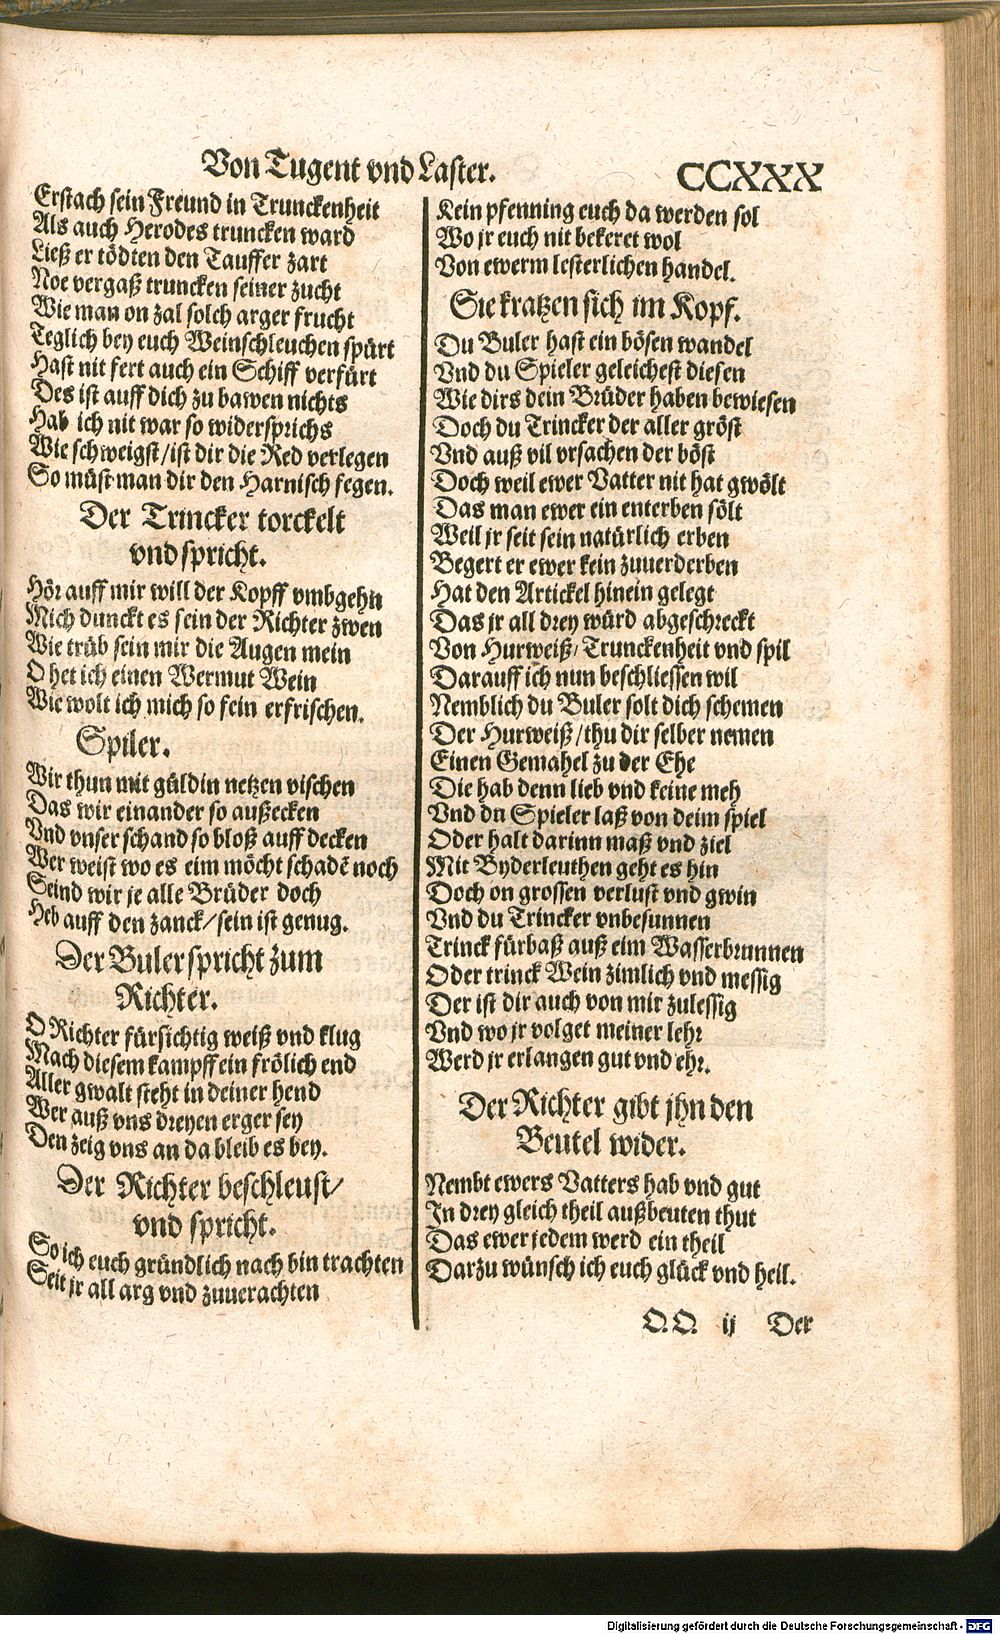 Von Tugent vnd Laster.
CCXXX
Erstach sein Freund in Trunckenheit
Als auch Herodes truncken ward
Ließ er tödten den Tauffer zart
Noe vergaß truncken seiner zucht
Wie man on zal solch arger frucht
Teglich bey euch Weinschleuchen spürt
Hast nit fert auch ein Schiff verfürt
Des ist auff dich zu bawen nichts
Hab ich nit war so widersprichs
Wie schweigst/ist dir die Red verlegen
So müst man dir den Harnisch fegen.
Der Trincker torckelt
vnd spricht.
Hör auff mir will der Kopff vmbgehn
Mich dunckt es sein der Richter zwen
Wie trüb sein mir die Augen mein
O het ich einen Wermut Wein
Wie wolt ich mich so fein erfrischen.
Spiler.
Wir thun mit güldin netzen vischen
Das wir einander so außecken
Vnd vnser schand so bloß auff decken
Wer weist wo es eim möcht schadē noch
Seind wir je alle Brüder doch
Heb auff den zanck/sein ist genug.
Der Buler spricht zum
Richter.
O Richter fürsichtig weiß vnd klug
Mach diesem kampff ein frölich end
Aller gwalt steht in deiner hend
Wer auß vns dreyen erger sey
Den zeig vns an da bleib es bey.
Der Richter beschleust/
vnd spricht.
So ich euch gründlich nach bin trachten
Seit jr all arg vnd zuuerachten
Kein pfenning euch da werden sol
Wo jr euch nit bekeret wol
Von ewerm lesterlichen handel.
Sie kratzen sich im Kopf.
Du Buler hast ein bösen wandel
Vnd du Spieler geleichest diesen
Wie dirs dein Brüder haben bewiesen
Doch du Trincker der aller gröst
Vnd auß vil vrsachen der böst
Doch weil ewer Vatter nit hat gwölt
Das man ewer ein enterben sölt
Weil jr seit sein natürlich erben
Begert er ewer kein zuuerderben
Hat den Artickel hinein gelegt
Das jr all drey würd abgeschreckt
Von Hurweiß/Trunckenheit vnd spil
Darauff ich nun beschliessen wil
Nemblich du Buler solt dich schemen
Der Hurweiß/thu dir selber nemen
Einen Gemahel zu der Ehe
Die hab denn lieb vnd keine meh
Vnd du Spieler laß von deim spiel
Oder halt darinn maß vnd ziel
Mit Byderleuthen geht es hin
Doch on grossen verlust vnd gwin
Vnd du Trincker vnbesunnen
Trinck fürbaß auß eim Wasserbrunnen
Oder trinck Wein zimlich vnd messig
Der ist dir auch von mir zulessig
Vnd wo jr volget meiner lehr
Werd jr erlangen gut vnd ehr.
Der Richter gibt jhn den
Beutel wider.
Nembt ewers Vatters hab vnd gut
In drey gleich theil außbeuten thut
Das ewer jedem werd ein theil
Darzu wünsch ich euch glück vnd heil.
O.O. ij Der
Digitalisierung gefördert durch die Deutsche Forschungsgemeinschaft - DFG